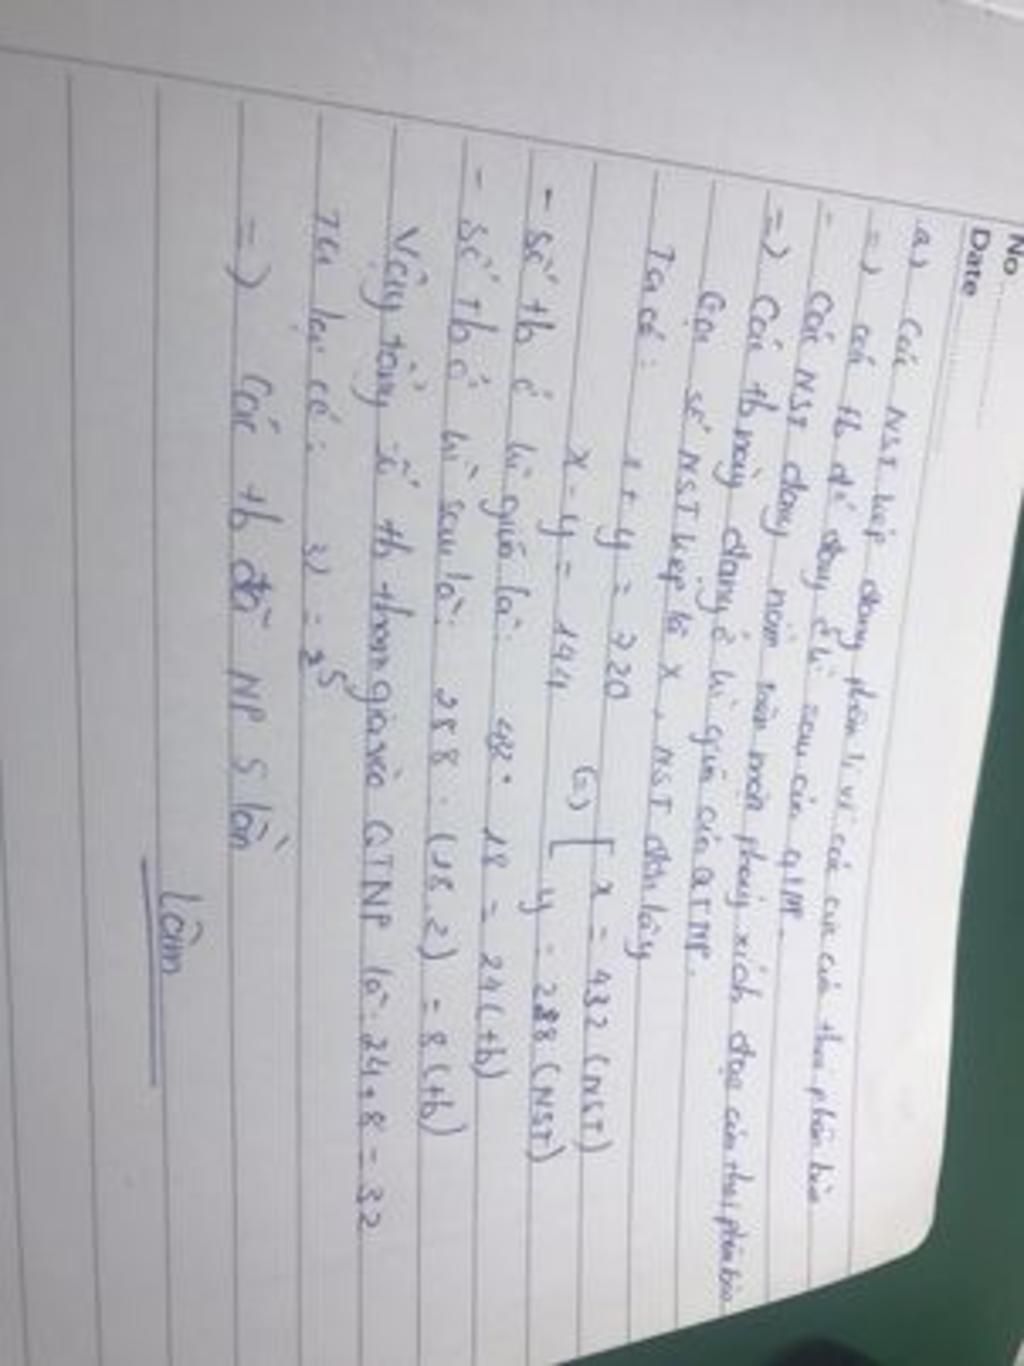 No
Date
a) Các NST kép đang phân li về các cực của thoi phân bào
=) các tb đó đang ở kì sau của
- Các NST đang nằm trên mp phẳng xích đạo của thoi phân bào
=) Các tb này đang ở kì giữa của QTNP.
Gọi số NST kép là x, NST đơn là y
Ta có: x + y = 720
x - y = 144 (=) [ x = 432 (NST)
y = 288 (NST)
- Số tb ở kì giữa là: 432: 18 = 24 (tb)
- Số tb ở kì sau là: 288: (18.2) = 8 (tb)
Vậy tổng số tb tham gia vào QTNP là: 24+8 = 32
Ta lại có: 32 = 2^5
=) Các tb đã NP 5 lần